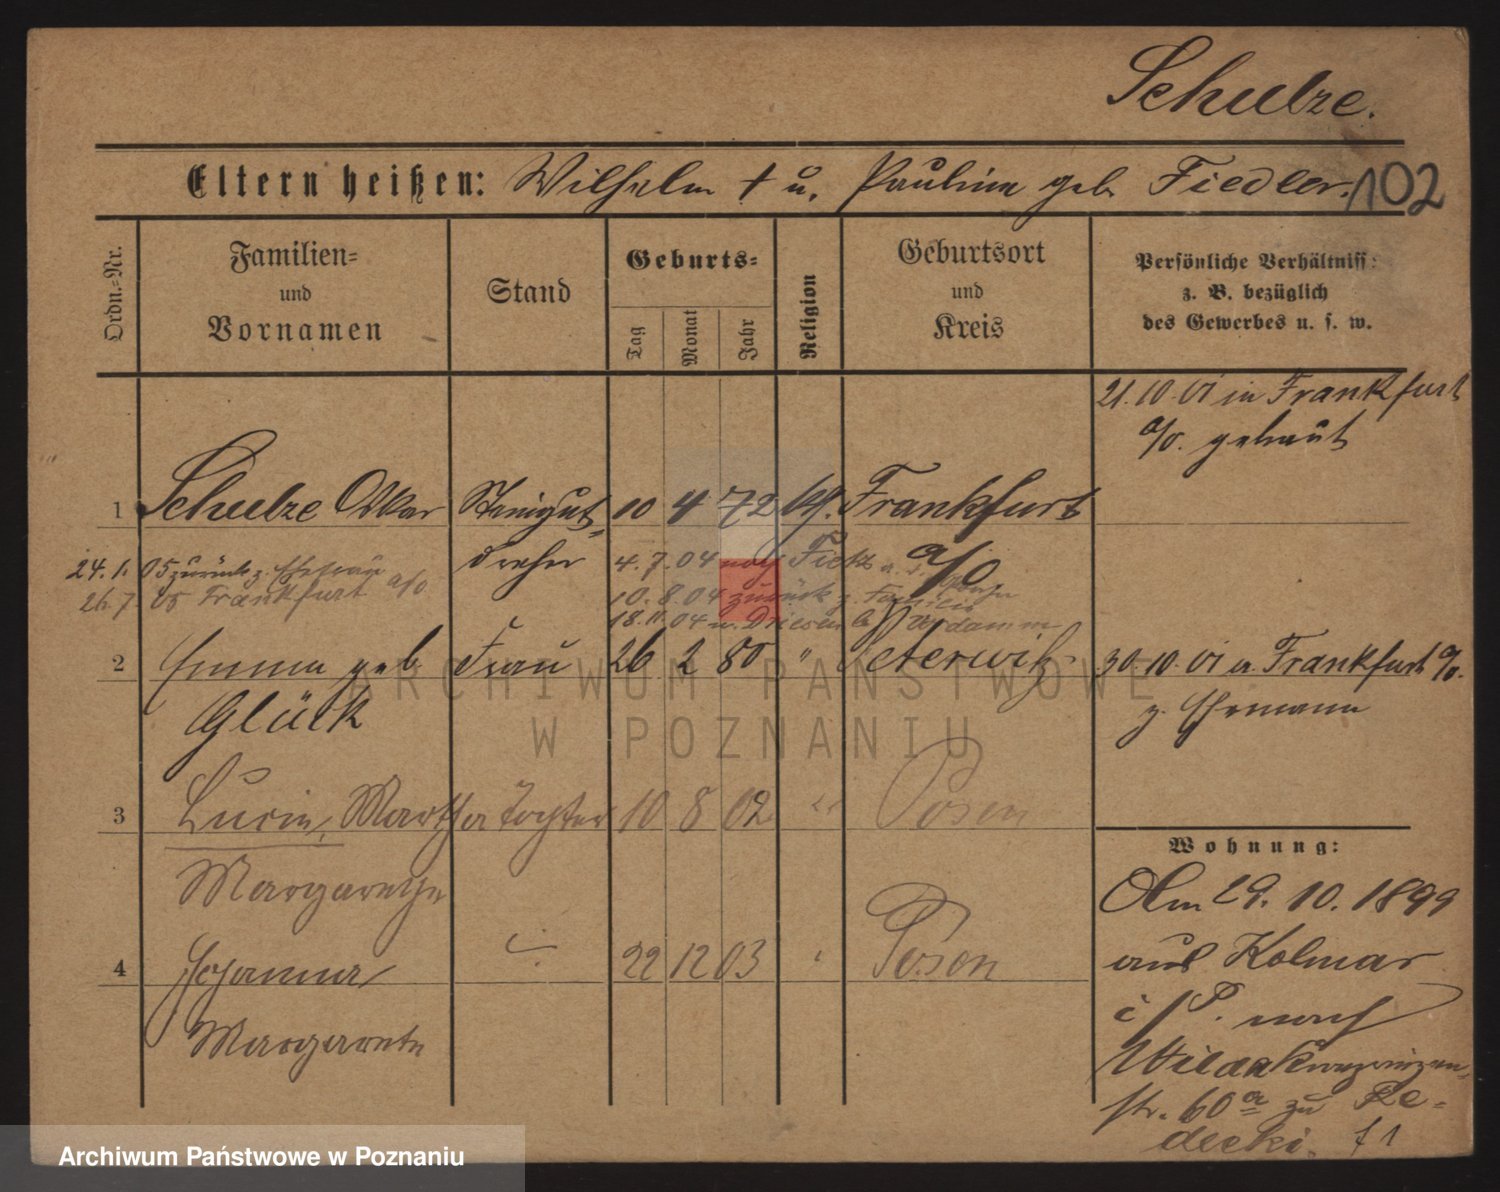 Schulze.
Eltern heißen: Wilhelm † u. Pauline geb Fiedler. 102
Ordn.-Nr.
Familien-
und
Vornamen
Stand
Geburts-
Tag
Monat
Jahr
Religion
Geburtsort
und
Kreis
Persönliche Verhältniss:
z. B. bezüglich
des Gewerbes u. s. w.
21.10.01 in Frankfurt
a/O. getraut
1 Schulze Oskar Steingut- 10 4 72 Frankfurt
dreher a/O
24.1.05 zurück z. Ehefrau
26.7.05 Frankfurt a/O
4.7.04 nach
10.8.04 zurück z. Familie
18.11.04 n. Driesen
2 Emma geb Frau 26 2 80 " Peterwitz 30.10.01 a. Frankfurt a/O.
Glück z. Ehemann
3 Lucie, Martha Tochter 10 8 02 " Posen
Margarethe
4 Johanna 22 12 03 Posen
Margarete
Wohnung:
Am 29.10.1899
aus Kolmar
i/P. nach
Wilda Kronprinzen-
str. 60a zu Re-
decki. f 1
ARCHIWUM PAŃSTWOWE
W POZNANIU
Archiwum Państwowe w Poznaniu